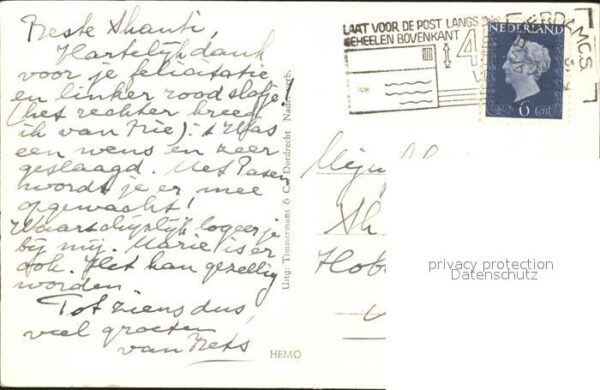 Beste Shanti,
Hartelijk dank
voor je felicitatie
en linker rood slofje!
(het rechter kreeg
ik van Mie): 't Was
een wens en zeer
geslaagd. Met Pasen
wordt je er mee
opgewacht!
Waarschijnlijk logeer je
bij mij. Marie is er
ook. Het kan gezellig
worden.
Tot ziens dus,
veel groeten
van Nets
Uitg: Timmermans & Co. Dordrecht Nadr. verb.
HEMO
LAAT VOOR DE POST LANGS DE
GEHEELEN BOVENKANT
4
NEDERLAND
6 Cent
Mej
Sh
Hob
privacy protection
Datenschutz